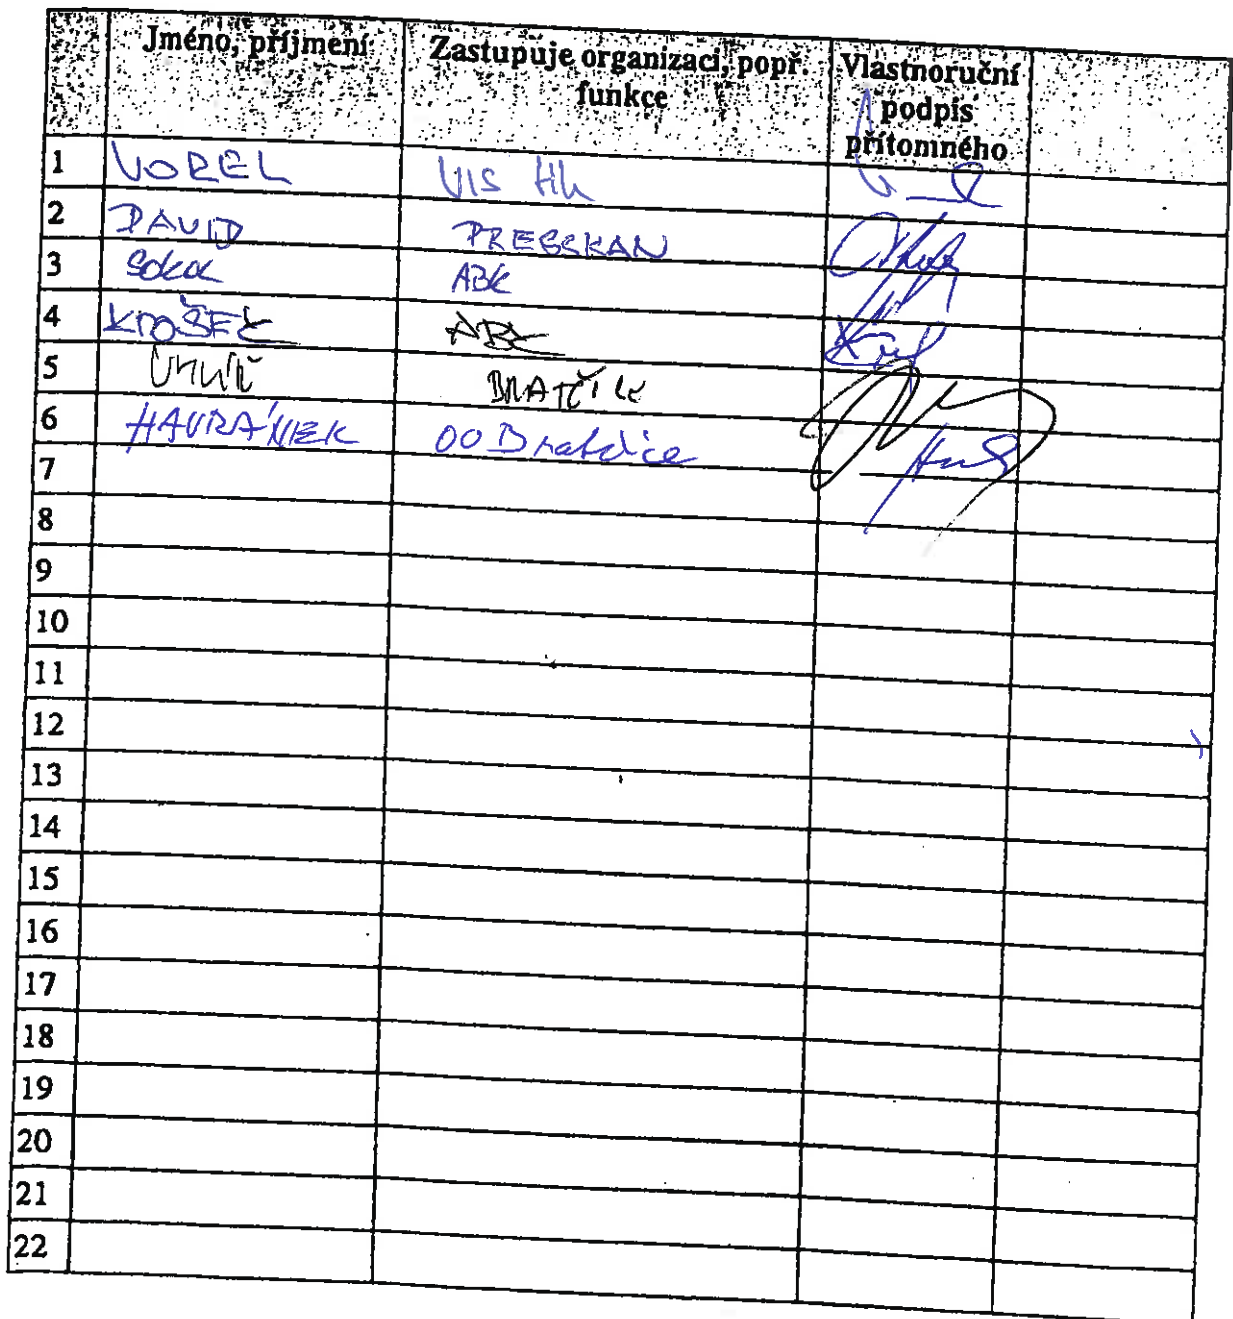 Jméno, příjmení Zastupuje organizaci, popř. funkce Vlastnoruční podpis přítomného
1 VOREL VIS HK
2 DAVID PRESSKAN
3 Sokol ABK
4 ABK
5
6 HAVRÁNEK OO Bratčice
7
8
9
10
11
12
13
14
15
16
17
18
19
20
21
22